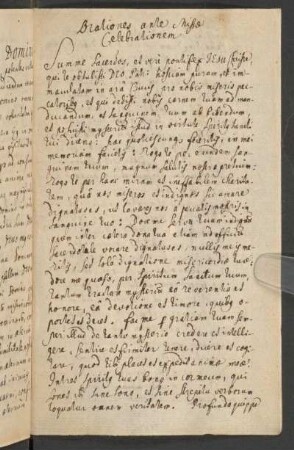 Orationes ante Missæ
Celebrationem
Summe Sacerdos, et vere pontifex Jesu Christe,
qui te obtulisti Deo Patri hostiam puram, et im
maculatam in ara Crucis pro nobis miseris pec
catoribus, et qui dedisti nobis carnem tuam ad man
ducandum, et sanguinem tuum ad bibendum,
et posuisti mysterium istud in virtute Spiritus Sanc
ti tui dicens: hæc quotiescunq feceritis, in mei
memoriam facietis: Rogo te per eundem San
guinem tuum, magnum salutis nostræ pretium:
Rogo te per hanc miram et ineffabilem charita
tem, qua nos miseros et indignos sic amare
dignatus es, ut lavares nos a peccatis nostris in
sanguine tuo: Doce me servum tuum indignum
quem inter cætera dona tua etiam ad officium
sacerdotale vocare dignatus es, nullis meis me
ritis, sed sola dignatione misericordiæ tuæ:
doce me quæso, per Spiritum Sanctum tuum,
tantum tractare mysterium ea reverentia et
honore, ea devotione et timore, quibus o
portet et decet. fac me p gratiam tuam sem
per illud de tanto mysterio credere et intelli
gere, sentire et firmiter tenere, dicere et cogi
tare, quod tibi placet et expedit animæ meæ.
Intret spiritus tuus bonus in cor meum, qui
sonet ibi sine sono, et sine strepitu verborum
loquatur omnem veritatem. Profunda quippe